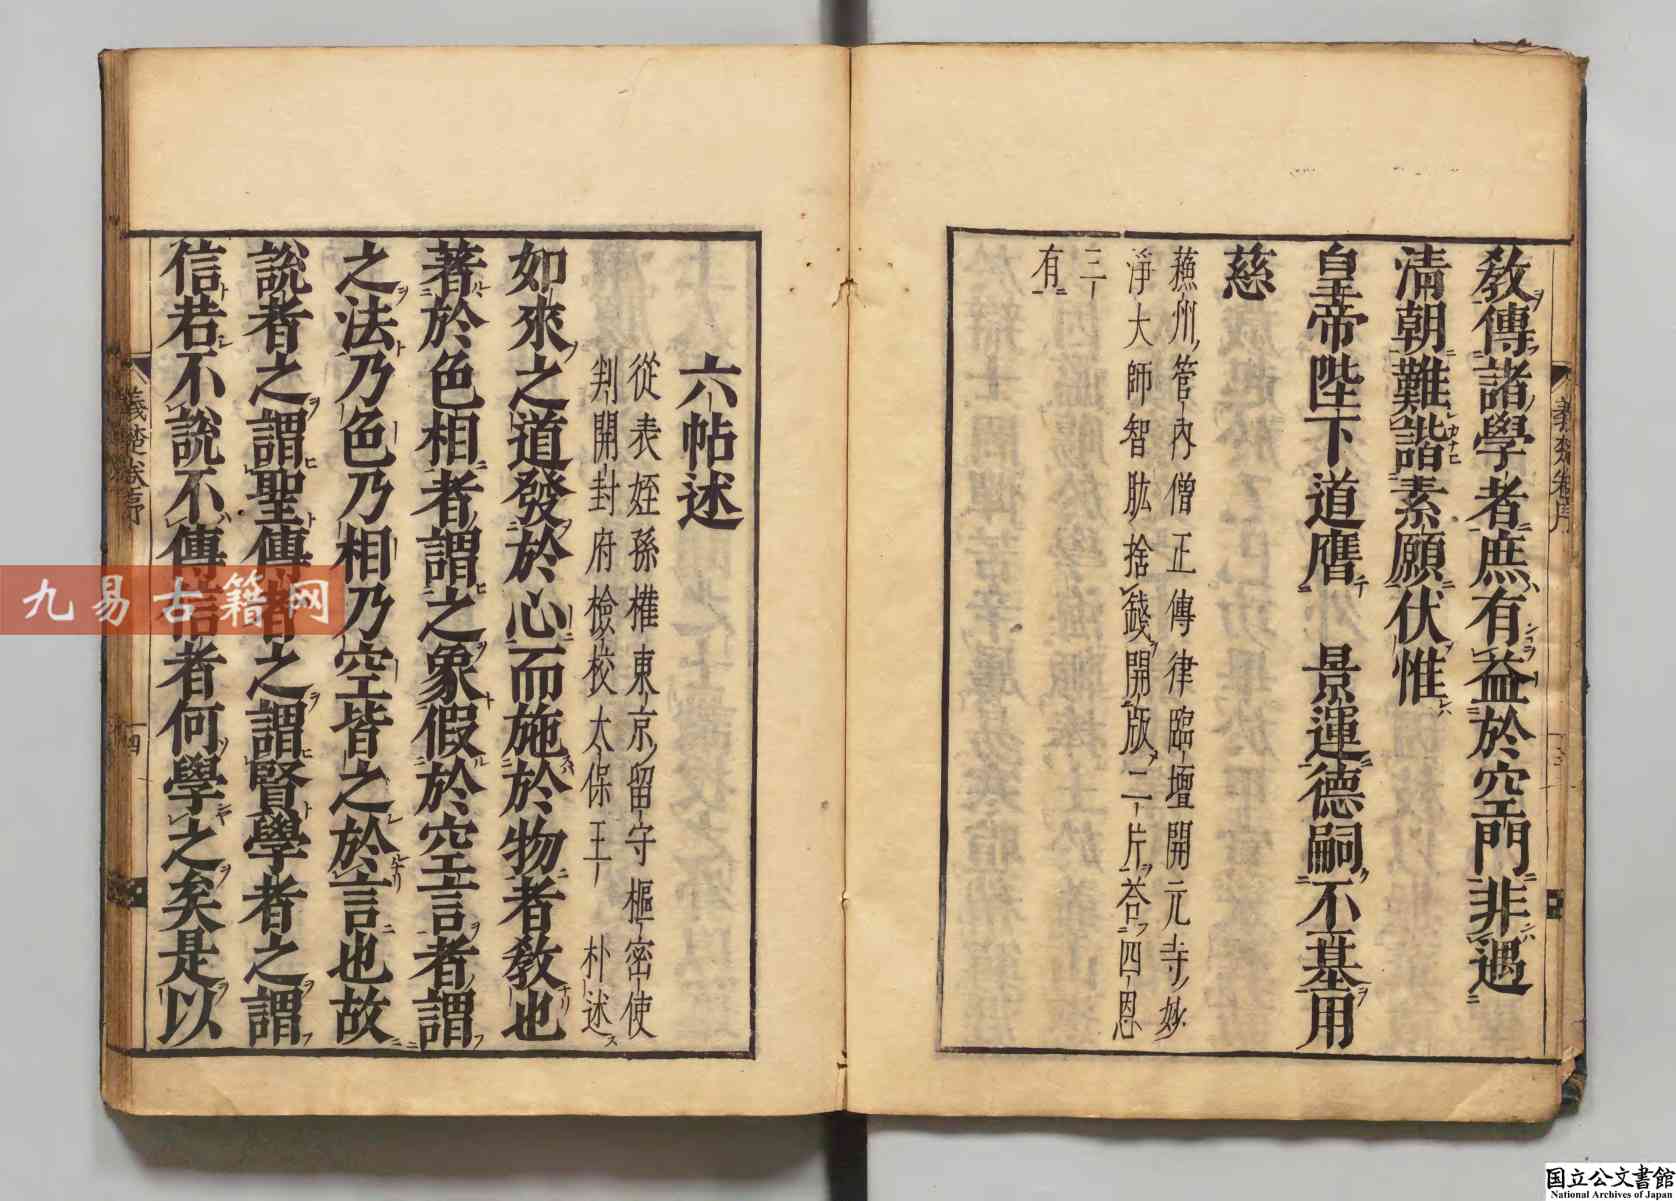 敎傳諸學者庶有益於空門非遇
淸朝難諧素願伏惟
皇帝陛下道膺　景運德嗣不基用
慈
蘓州管内僧正傳律臨壇開元寺妙
淨大師智肱捨錢開版二片荅四恩
三有
六帖述
從表姪孫權東京留守樞密使
判開封府檢校太保王　朴述
如來之道發於心而施於物者敎也
著於色相者謂之象假於空言者謂
之法乃色乃相乃空皆之於言也故
說者之謂聖傳者之謂賢學者之謂
信若不說不傳信者何學之矣是以
義楚卷序
四
九易古籍网
国立公文書館
National Archives of Japan